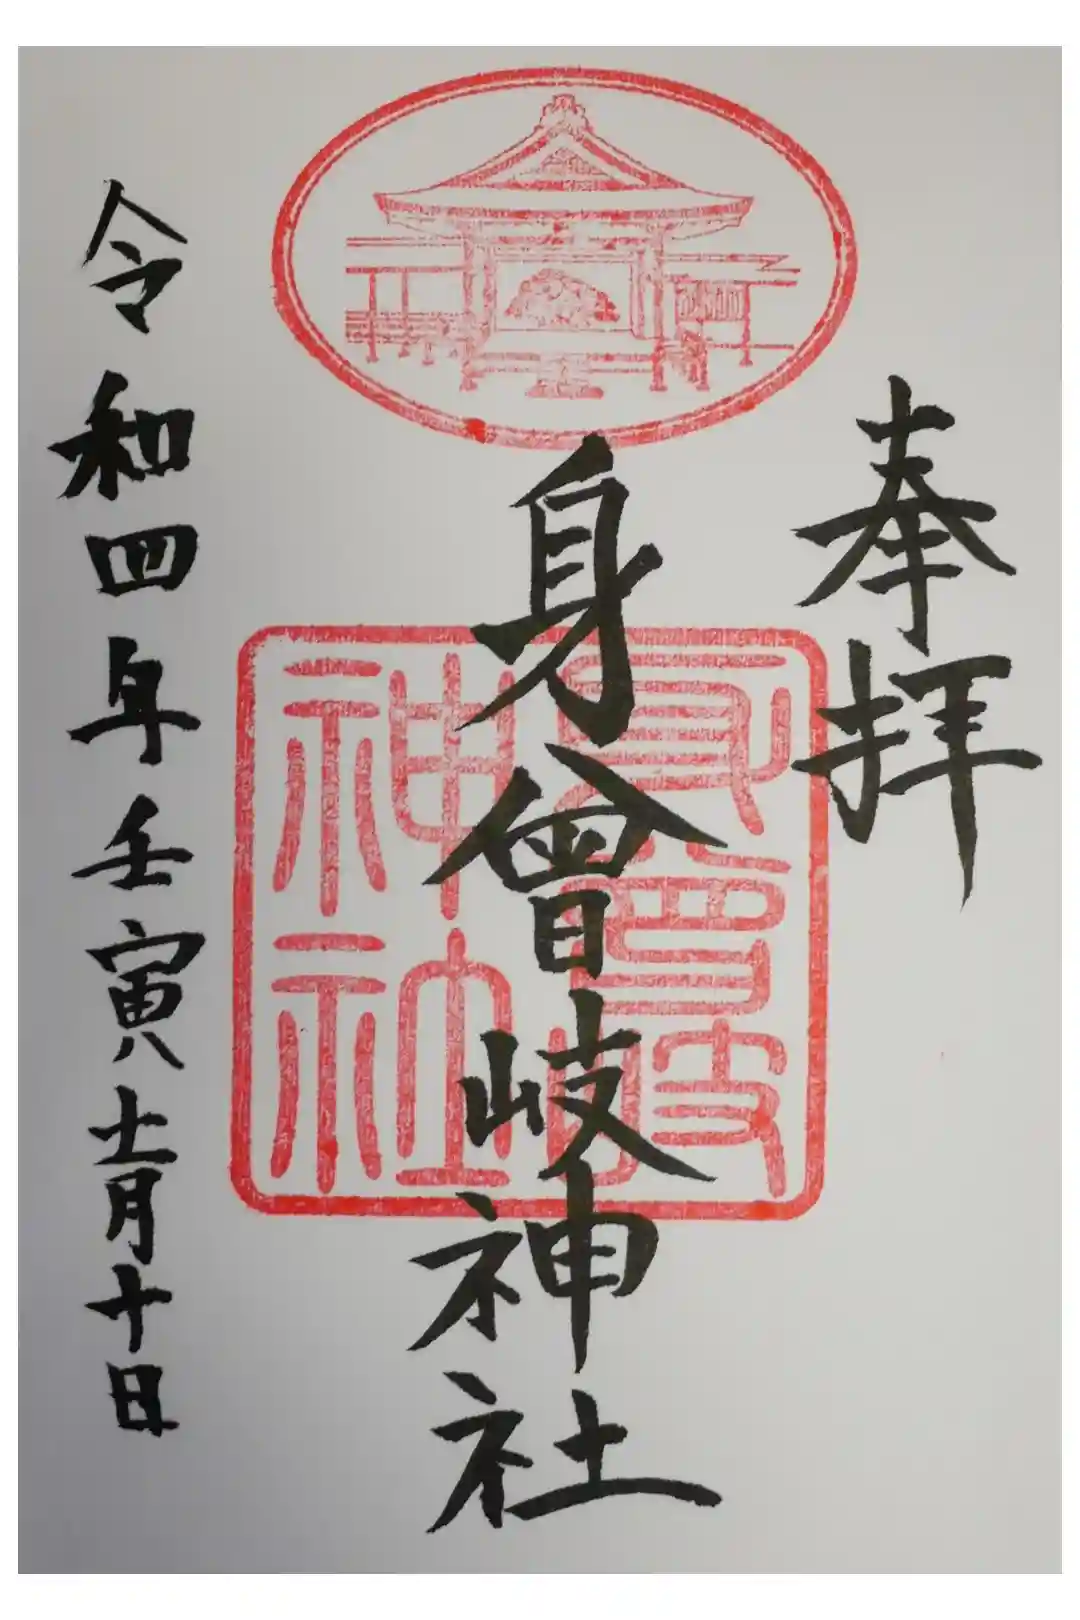 奉拝
身曾岐神社
身曾岐神社
令和四年壬寅十一月十日